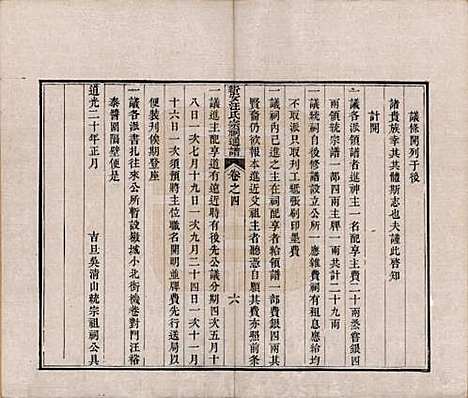 議條開列于後
諸貴族幸其共體斯志也夫謹此啓知
計開
一議各派領譜者進神主一名配享主費二十兩蒸嘗銀四
兩領統宗譜一部四兩主牌一兩共計二十九兩
一議統祠自後修譜設立公所一應雜費祠有租息應給均
不取派只取刊工紙張刷印墨費
一議祠內已進之主在祠配享者給領譜一部費銀四兩其
賢裔仍欲報本進近文祖主者聽憑自願其費亦照前條
一議進主配享道有遠近聘有後先公議分期四次五月十
八日一次七月十九日一次九月二十四日一次十一月
十六日一次須預將主位職名開明並牌費先行送局以
便裝刋候期登座
一議各派書札往來公所暫設嚴城小北街機巷對門汪裕
泰醬園隔壁便是
道光二十年正月　吉旦吳清山統宗祖祠公具
新安汪氏宗祠通譜　卷之四　六